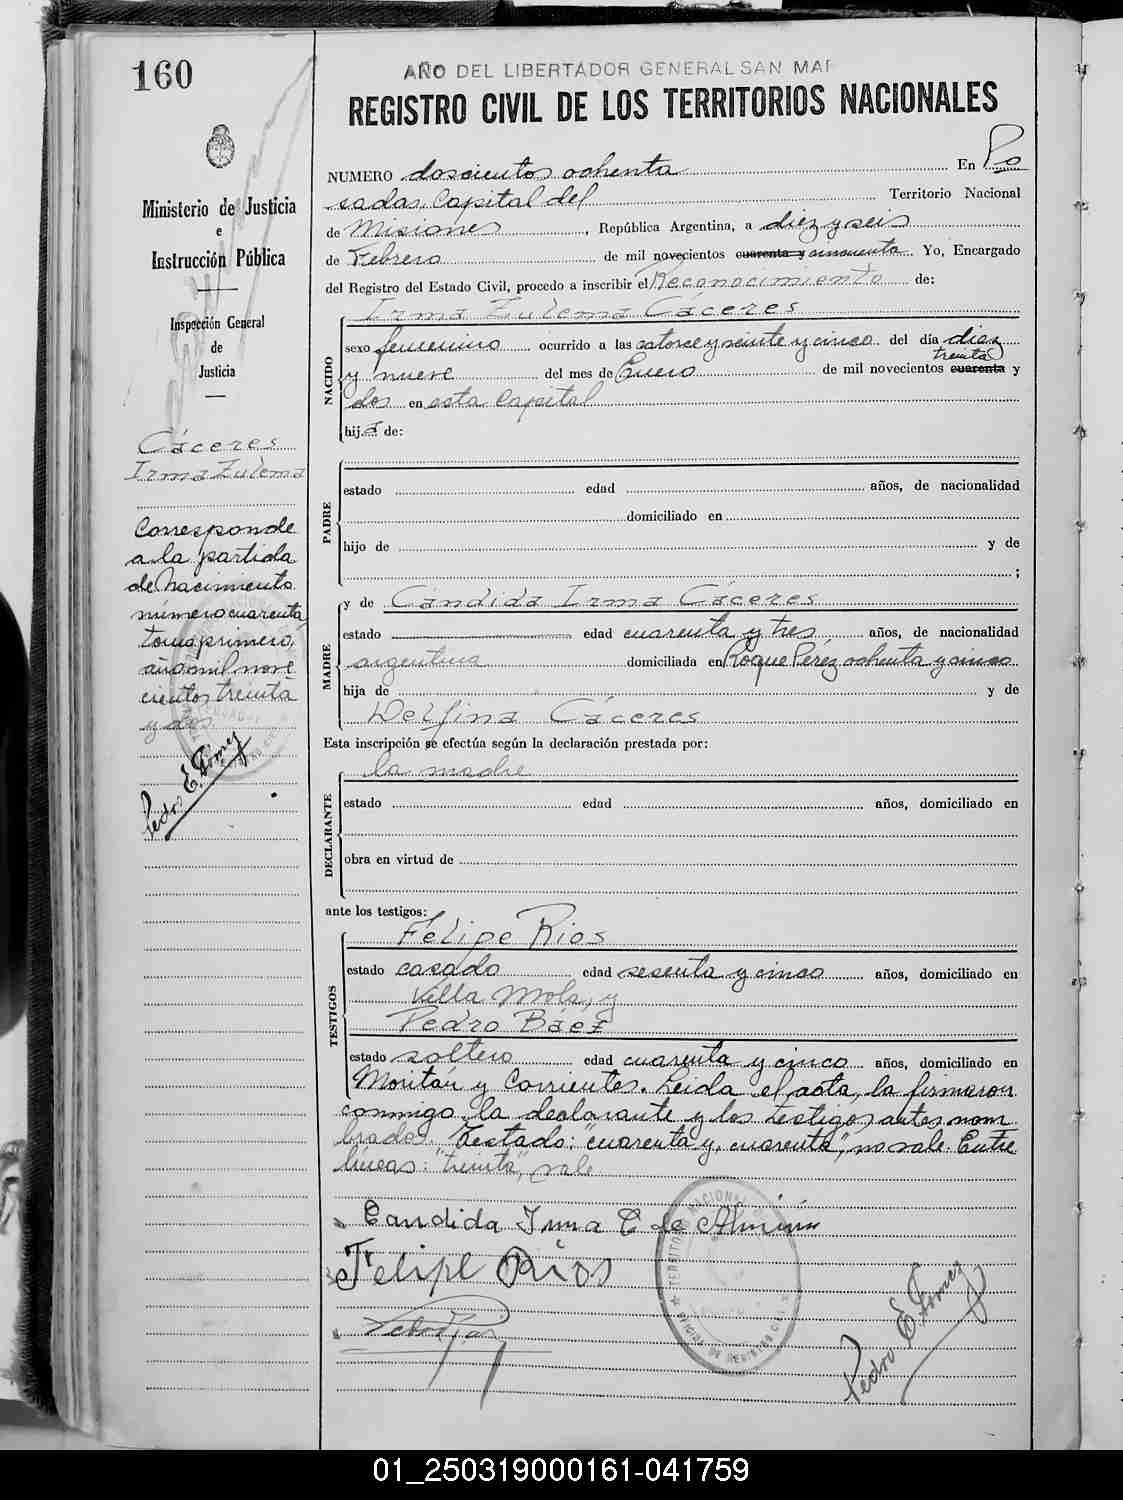 160
AÑO DEL LIBERTADOR GENERAL SAN MAR
REGISTRO CIVIL DE LOS TERRITORIOS NACIONALES
Ministerio de Justicia
e
Instrucción Pública
Inspección General
de
Justicia
Cáceres
Irma Zulema
Corresponde
a la partida
de Nacimiento
número cuarenta,
tomo primero,
año mil nove
cientos treinta
y dos.
Pedro E. Gómez
NUMERO doscientos ochenta En Po
sadas, Capital del Territorio Nacional
de Misiones, República Argentina, a diez y seis
de Febrero de mil novecientos cuarenta y cincuenta. Yo, Encargado
del Registro del Estado Civil, procedo a inscribir el Reconocimiento de:
Irma Zulema Cáceres
NACIDO
sexo femenino ocurrido a las catorce y veinte y cinco del día diez
treinta
y nueve del mes de Enero de mil novecientos cuarenta y
dos en esta Capital
hija de:
PADRE
estado edad años, de nacionalidad
domiciliado en
hijo de y de
;
MADRE
y de Cándida Irma Cáceres
estado edad cuarenta y tres años, de nacionalidad
argentina domiciliada en Roque Pérez ochenta y cinco
hija de y de
Delfina Cáceres
Esta inscripción se efectúa según la declaración prestada por:
la madre
DECLARANTE
estado edad años, domiciliado en
obra en virtud de
ante los testigos:
Felipe Rios
TESTIGOS
estado casado edad sesenta y cinco años, domiciliado en
Villa Mola, y
Pedro Báez
estado soltero edad cuarenta y cinco años, domiciliado en
Moritán y Corrientes. Leida el acta, la firmaron
conmigo la declarante y los testigos antes nom
brados. Testado: "cuarenta y, cuarenta", no vale. Entre
líneas: "treinta", vale
Candida Irma C de
Felipe Rios
Pedro E. Gómez
01_250319000161-041759